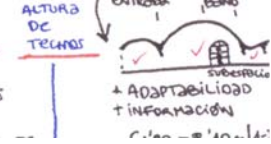 ALTURA
DE
TECHOS
ENTRADA
SUBESPACIO
+ ADAPTABILIDAD
+ INFORMACIÓN